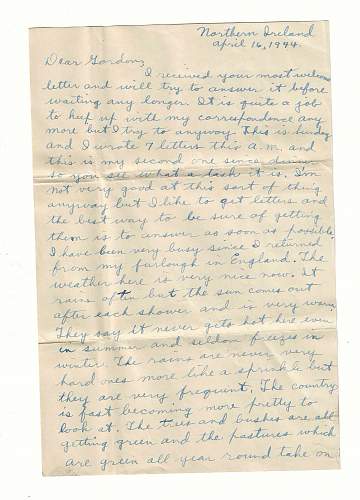 Northern Ireland
April 16, 1944.
Dear Gordon,
I received your most welcome
letter and will try to answer it before
waiting any longer. It is quite a job
to keep up with my correspondence any
more but I try to anyway. This is Sunday
and I wrote 7 letters this A.M. and
this is my second one since dinner
so you see what a task it is. I'm
not very good at this sort of thing
anyway but I like to get letters and
the best way to be sure of getting
them is to answer as soon as possible.
I have been very busy since I returned
from my furlough in England. The
weather here is very nice now. It
rains often but the sun comes out
after each shower and is very warm.
They say it never gets hot here even
in summer and seldom freezes in
winter. The rains are never very
hard ones more like a sprinkle but
they are very frequent. The country
is fast becoming more pretty to
look at. The trees and bushes are all
getting green and the pastures which
are green all year round take on